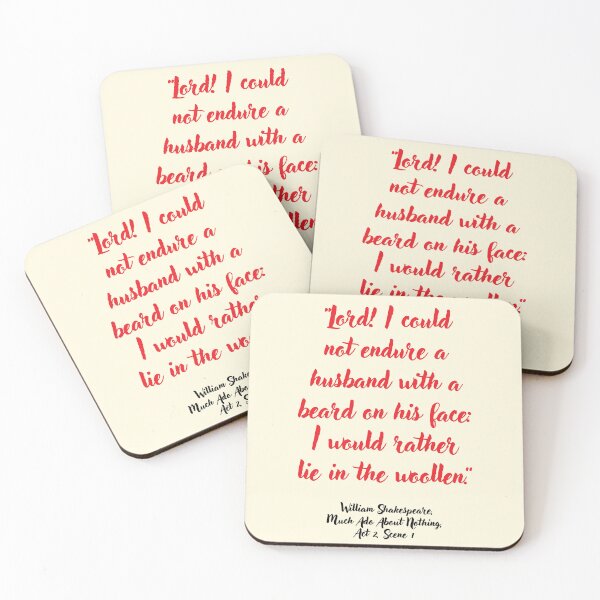 "Lord! I could
not endure a
husband with a
beard his face:
"Lord! I could
not endure a
husband with a
beard on his face:
I would rather
lie in the woollen."
"Lord! I could
not endure a
husband with a
beard on his face:
I would
lie in the
William
Much Ado
Act 2,
"Lord! I could
not endure a
husband with a
beard on his face:
I would rather
lie in the woollen."
William Shakespeare,
Much Ado About Nothing,
Act 2, Scene 1